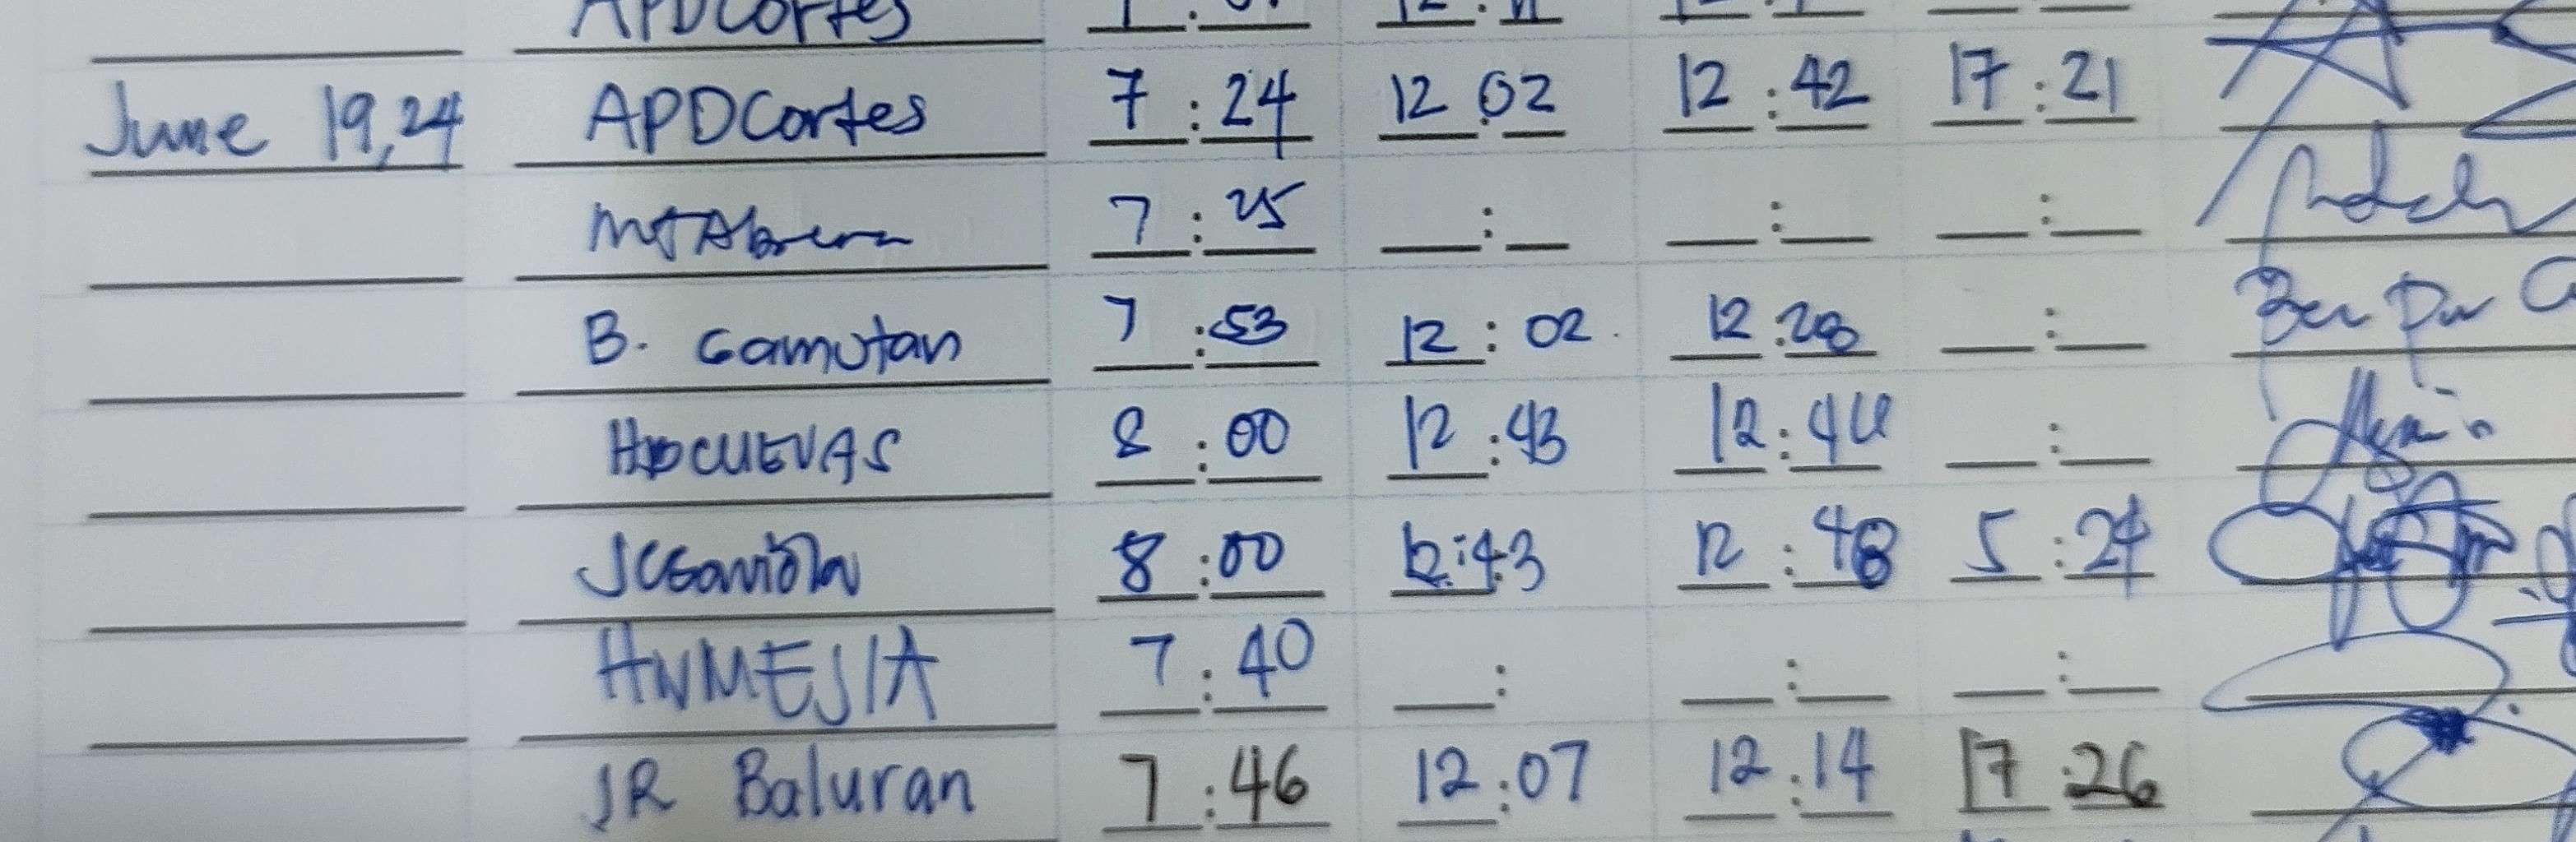 APDCortes
June 19,24 APDCortes 7:24 12:02 12:42 17:21
MJAbrera 7:25 __:__ __:__ __:__
B. Camutan 7:53 12:02 12:28 __:__
HDCUEVAS 8:00 12:43 12:44 __:__
JCGaviola 8:00 12:43 12:48 5:24
HNMEJIA 7:40 __: __:__ __:__
JR Baluran 7:46 12:07 12:14 17:26